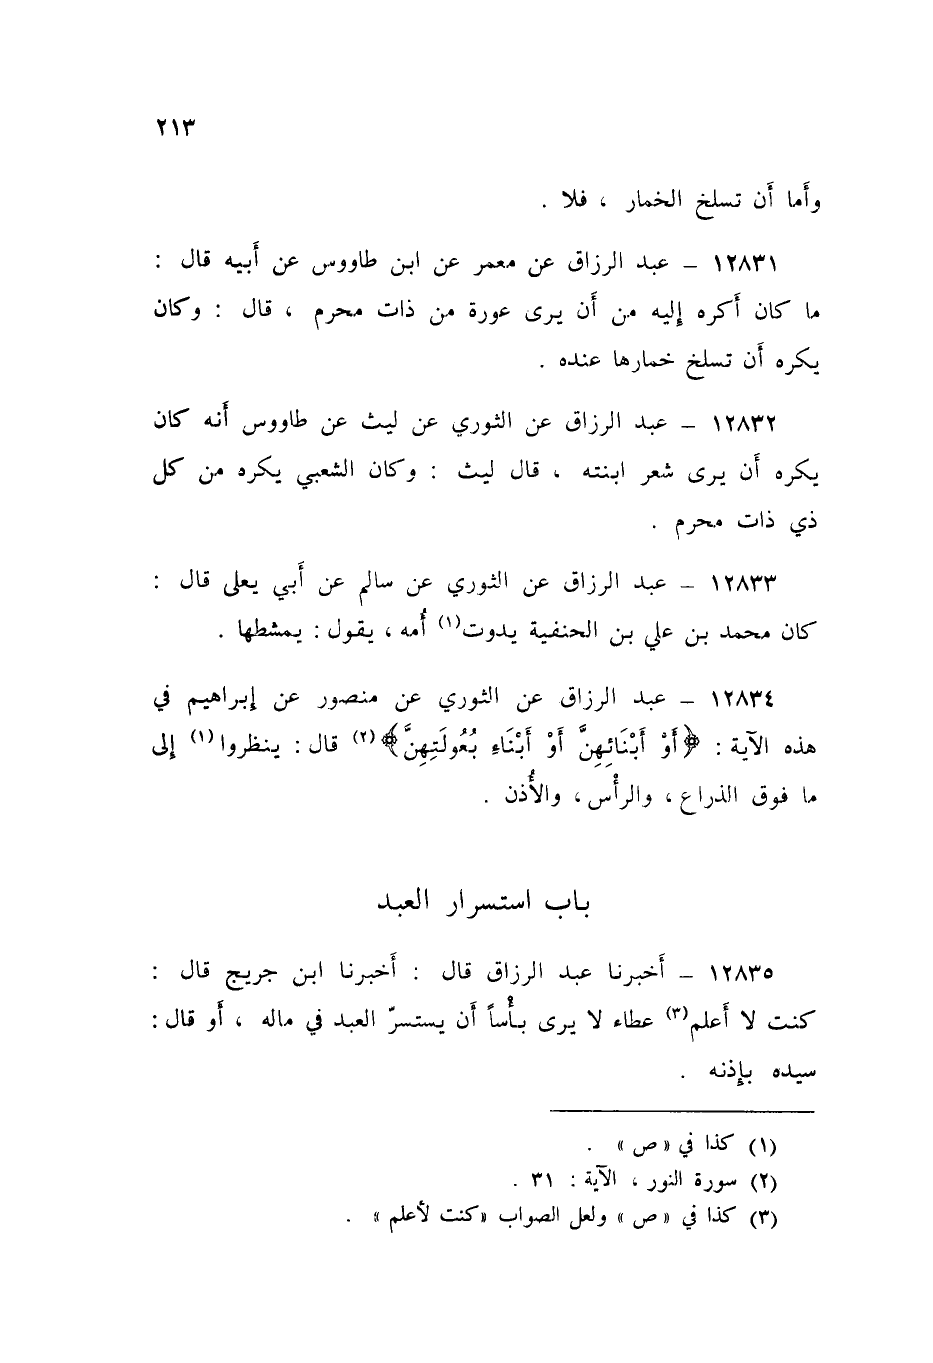 ٢١٣
وأَما أَن تسلخ الخمار ، فلا .
١٢٨٣١ – عبد الرزاق عن معمر عن ابن طاووس عن أَبيه قال :
ما كان أَكره إِليه من أَن يرى عورة من ذات محرم ، قال : وكان
يكره أَن تسلخ خمارها عنده .
١٢٨٣٢ – عبد الرزاق عن الثوري عن ليث عن طاووس أَنه كان
يكره أَن يرى شعر ابنته ، قال ليث : وكان الشعبي يكره من كل
ذي ذات محرم .
١٢٨٣٣ – عبد الرزاق عن الثوري عن سالم عن أَبي يعلى قال :
كان محمد بن علي بن الحنفية يدوت(١) أُمه ، يقول : يمشطها .
١٢٨٣٤ – عبد الرزاق عن الثوري عن منصور عن إِبراهيم في
هذه الآية : ﴿أَوْ أَبْنَائِهِنَّ أَوْ أَبْنَاءِ بُعُولَتِهِنَّ﴾(٢) قال : ينظروا(١) إلى
ما فوق الذراع ، والرأْس ، والأُذن .
باب استسرار العبد
١٢٨٣٥ – أَخبرنا عبد الرزاق قال : أَخبرنا ابن جريج قال :
كنت لا أَعلم(٣) عطاء لا يرى بأْساً أَن يستسرّ العبد في ماله ، أَو قال :
سيده بإِذنه .
(١) كذا في « ص » .
(٢) سورة النور ، الآية : ٣١ .
(٣) كذا في « ص » ولعل الصواب «كنت لأعلم » .